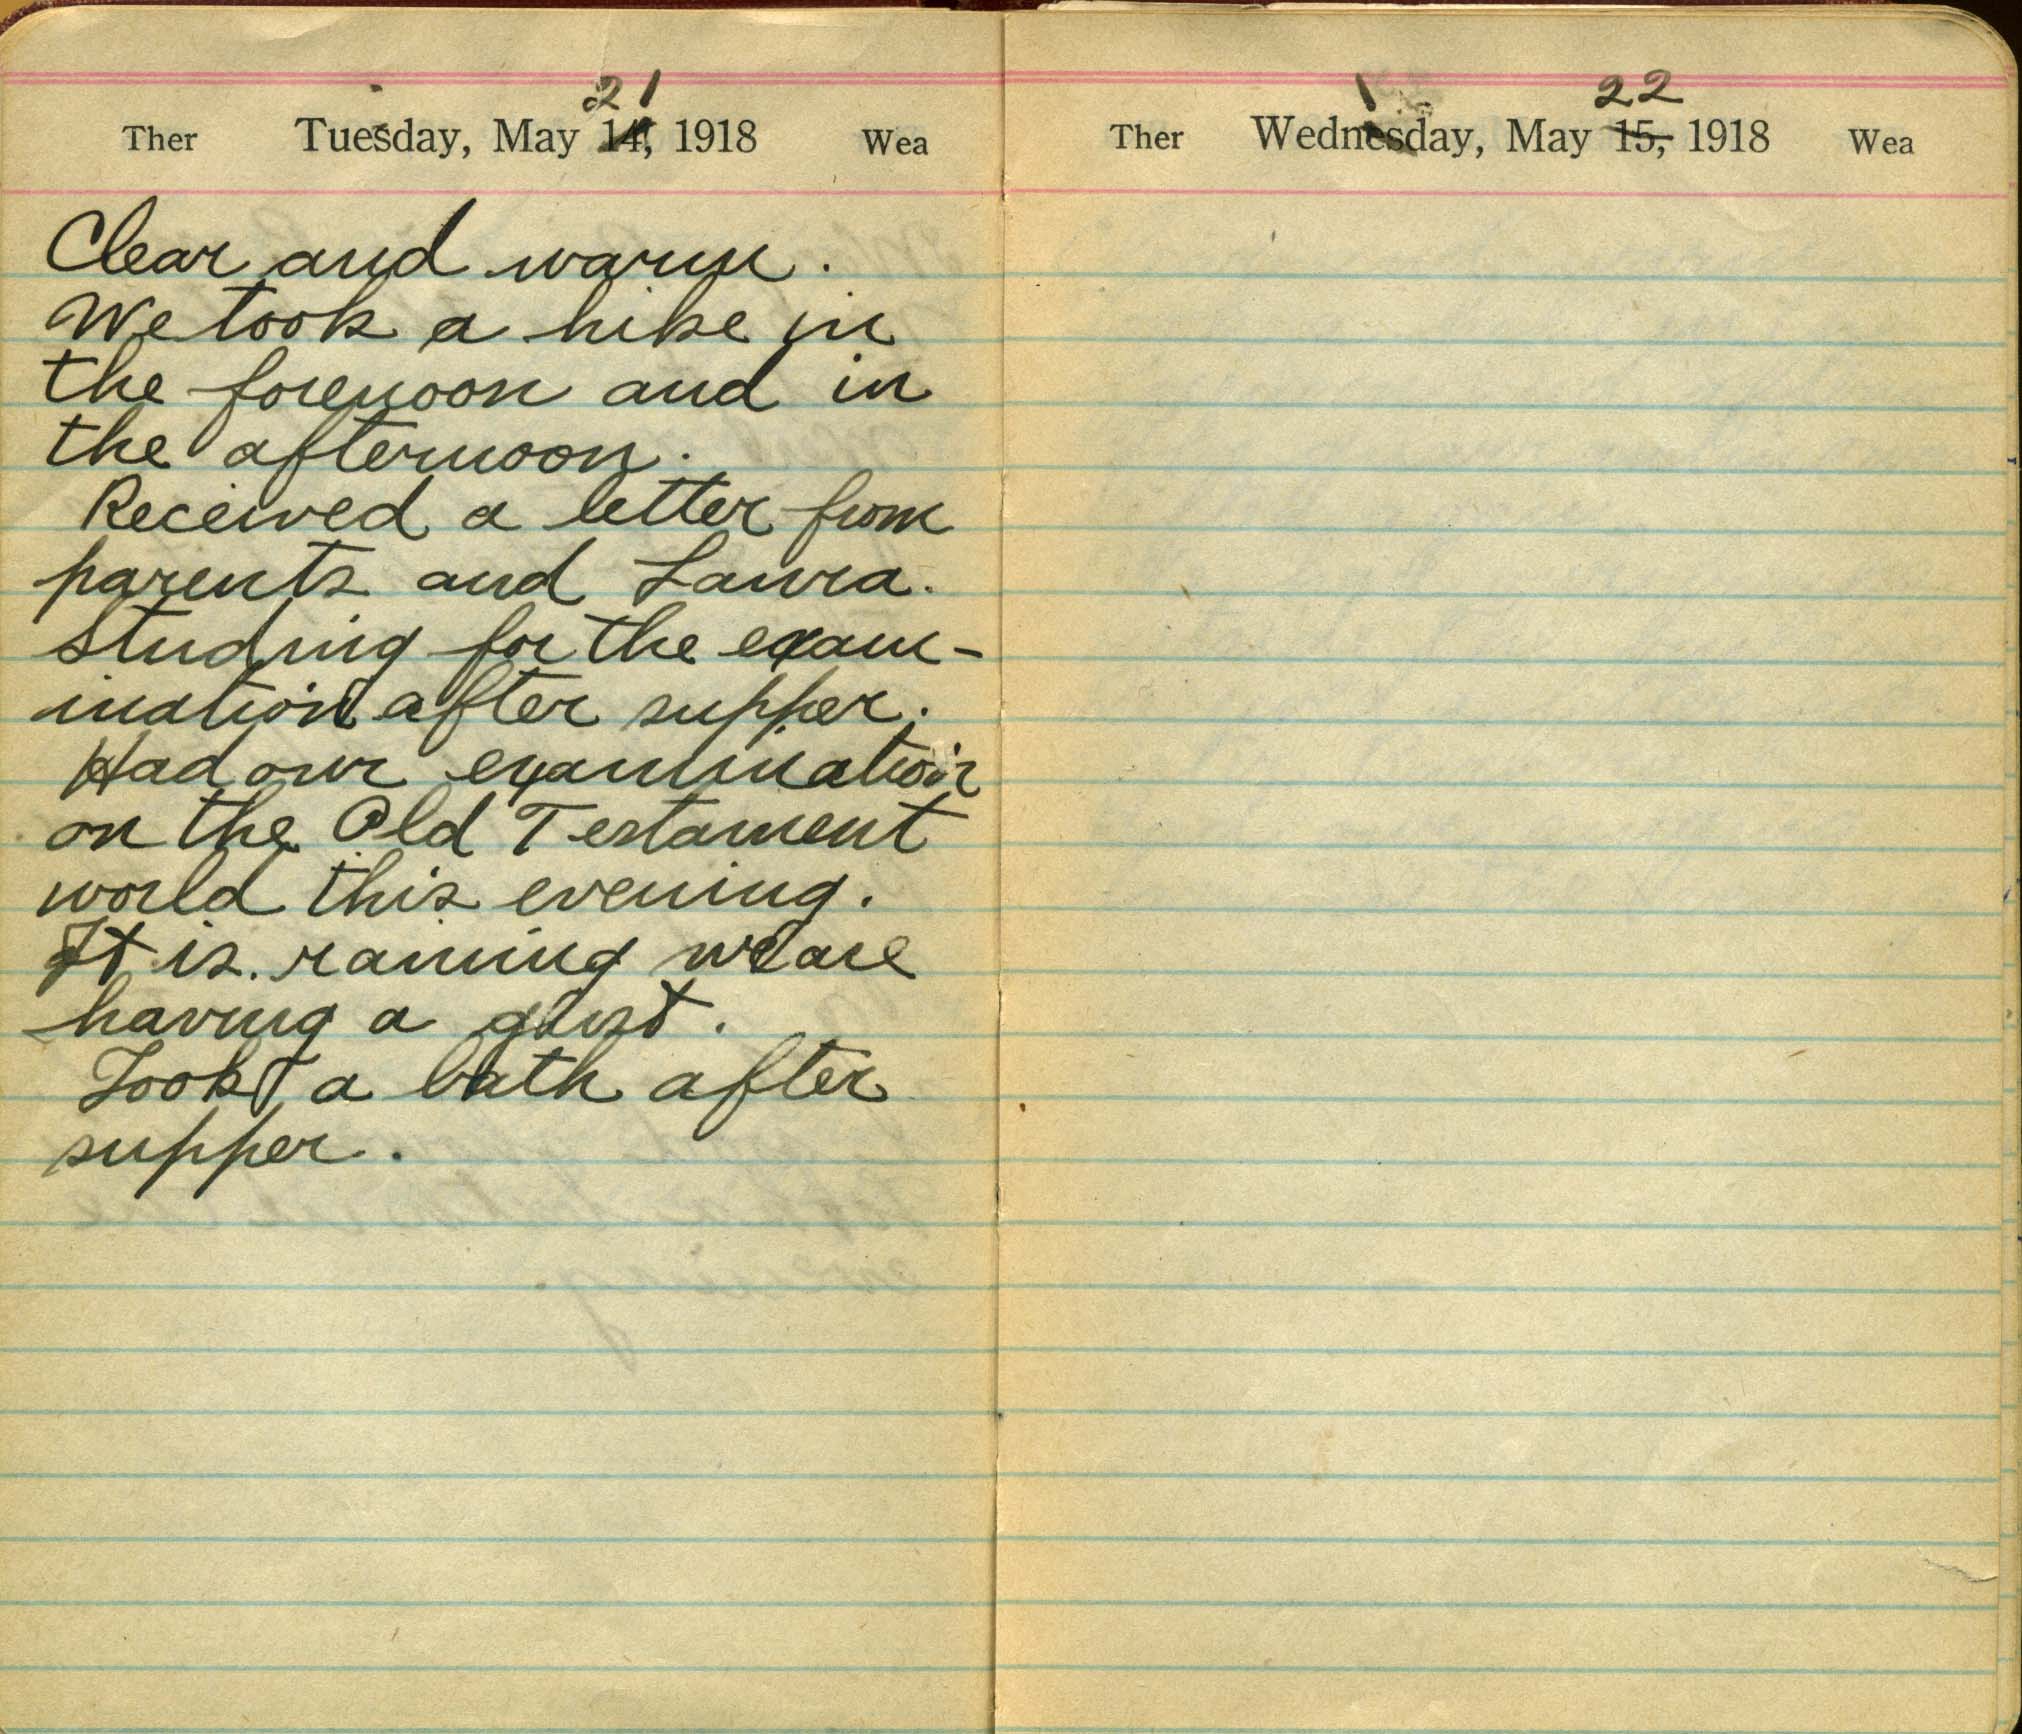 21
Ther Tuesday, May 14, 1918 Wea
Clear and warm.
We took a hike in
the forenoon and in
the afternoon.
Received a letter from
parents and Laura.
Studing for the exam-
ination after supper.
Had our examination
on the Old Testament
world this evening.
It is raining we are
having a gust.
Took a bath after
supper.
22
Ther Wednesday, May 15, 1918 Wea